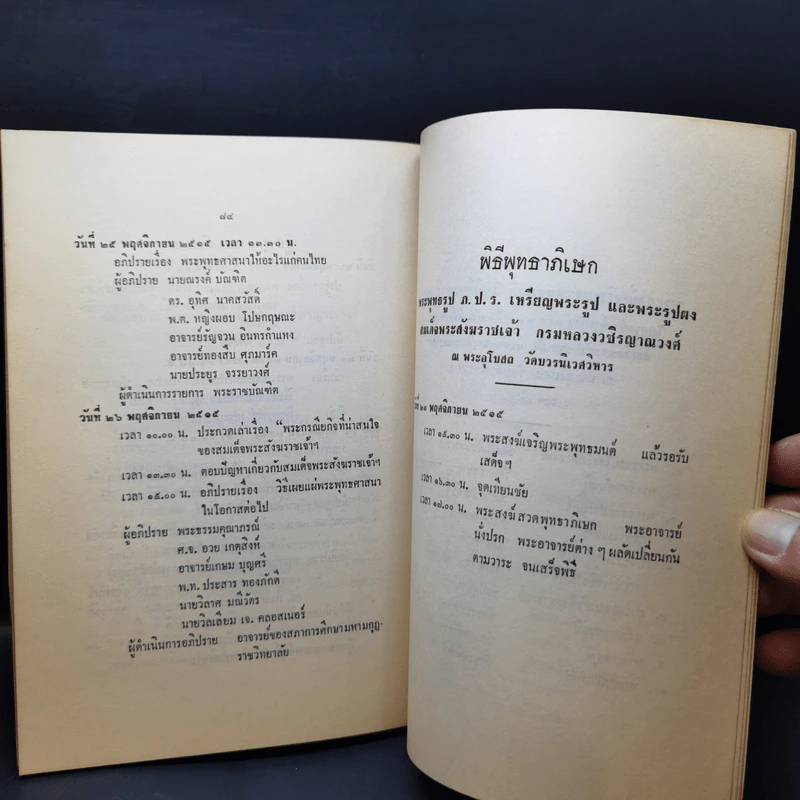 ๘๔
วันที่ ๒๕ พฤศจิกายน ๒๕๑๕ เวลา ๑๓.๓๐ น.
อภิปรายเรื่อง พระพุทธศาสนาให้อะไรแก่คนไทย
ผู้อภิปราย นายณรงค์ บัณฑิต
ดร. อุทิศ นาคสวัสดิ์
พ.ต. หญิงผอบ โปษกฤษณะ
อาจารย์รัญจวน อินทรกำแหง
อาจารย์ทองสืบ ศุภมาร์ค
นายประยูร จรรยาวงศ์
ผู้ดำเนินการรายการ พระราชบัณฑิต
วันที่ ๒๖ พฤศจิกายน ๒๕๑๕
เวลา ๑๐.๐๐ น. ประกวดเล่าเรื่อง "พระกรณียกิจที่น่าสนใจ
ของสมเด็จพระสังฆราชเจ้าฯ
เวลา ๑๓.๓๐ น. ตอบปัญหาเกี่ยวกับสมเด็จพระสังฆราชเจ้าฯ
เวลา ๑๕.๐๐ น. อภิปรายเรื่อง วิธีเผยแผ่พระพุทธศาสนา
ในโอกาสต่อไป
ผู้อภิปราย พระธรรมคุณาภรณ์
ศ.จ. อวย เกตุสิงห์
อาจารย์เกษม บุญศรี
พ.ท. ประสาร ทองภักดี
นายวิลาศ มณีวัต
นายวิลเลียม เจ. คลอสเนอร์
ผู้ดำเนินการอภิปราย อาจารย์ของสภาการศึกษามหามกุฏ-
ราชวิทยาลัย
พิธีพุทธาภิเษก
พระพุทธรูป ภ.ป.ร. เหรียญพระรูป และพระรูปผง
สมเด็จพระสังฆราชเจ้า กรมหลวงวชิรญาณวงศ์
ณ พระอุโบสถ วัดบวรนิเวศวิหาร
วันที่ ๒๑ พฤศจิกายน ๒๕๑๕
เวลา ๑๕.๓๐ น. พระสงฆ์เจริญพระพุทธมนต์ แล้วรอรับ
เสด็จฯ
เวลา ๑๖.๓๐ น. จุดเทียนชัย
เวลา ๑๗.๐๐ น. พระสงฆ์สวดพุทธาภิเษก พระอาจารย์
นั่งปรก พระอาจารย์ต่าง ๆ ผลัดเปลี่ยนกัน
ตามวาระ จนเสร็จพิธี